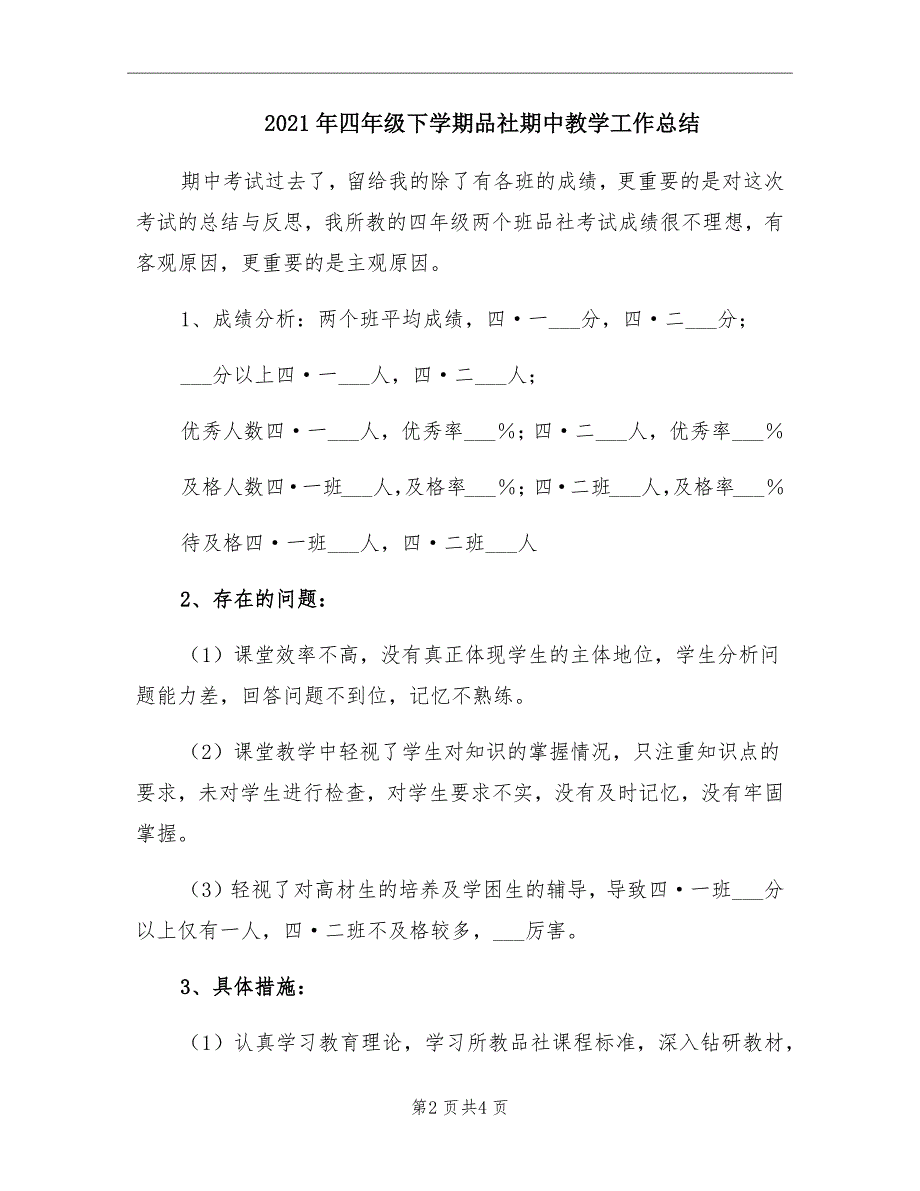 2021年四年级下学期品社期中教学工作总结
期中考试过去了，留给我的除了有各班的成绩，更重要的是对这次
考试的总结与反思，我所教的四年级两个班品社考试成绩很不理想，有
客观原因，更重要的是主观原因。
1、成绩分析：两个班平均成绩，四·一___分，四·二___分；
___分以上四·一___人，四·二___人；
优秀人数四·一___人，优秀率___%；四·二___人，优秀率___%
及格人数四·一班___人，及格率___%；四·二班___人，及格率___%
待及格四·一班___人，四·二班___人
2、存在的问题：
（1）课堂效率不高，没有真正体现学生的主体地位，学生分析问
题能力差，回答问题不到位，记忆不熟练。
（2）课堂教学中轻视了学生对知识的掌握情况，只注重知识点的
要求，未对学生进行检查，对学生要求不实，没有及时记忆，没有牢固
掌握。
（3）轻视了对高材生的培养及学困生的辅导，导致四·一班___分
以上仅有一人，四·二班不及格较多，___厉害。
3、具体措施：
（1）认真学习教育理论，学习所教品社课程标准，深入钻研教材，
第2 页共4 页